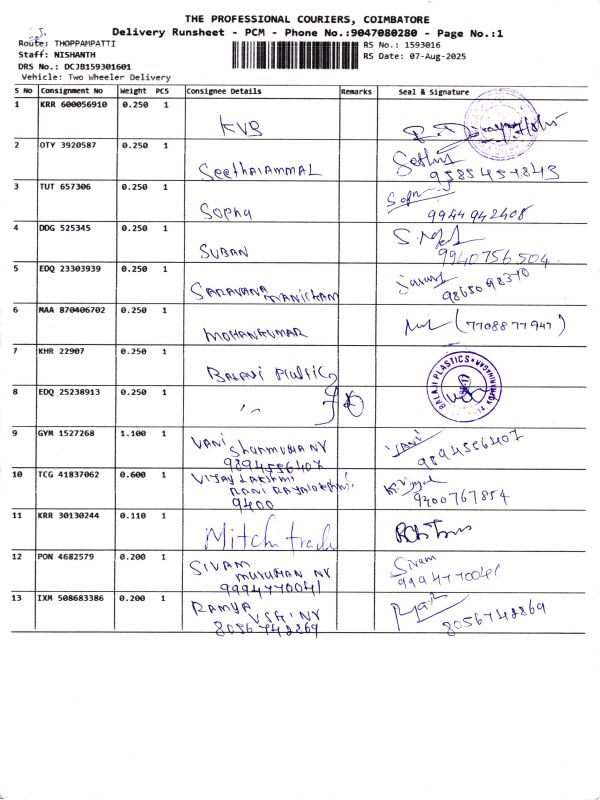 THE PROFESSIONAL COURIERS, COIMBATORE
Delivery Runsheet - PCM - Phone No.:9047080280 - Page No.:1
Route: THOPPAMPATTI
RS No.: 1593016
Staff: NISHANTH
RS Date: 07-Aug-2025
DRS No.: DCJB159301601
Vehicle: Two Wheeler Delivery
S No Consignment No Weight PCS Consignee Details Remarks Seal & Signature
1 KRR 600056910 0.250 1
KVB
2 OTY 3920587 0.250 1
Seethaiammal
9585454843
3 TUT 657306 0.250 1
Sophu
9944942408
4 DDG 525345 0.250 1
SUBAN
9940756504
5 EDQ 23303939 0.250 1
SARAVANA MANICKAM
9865098370
6 MAA 870406702 0.250 1
MOHANKUMAR (7708877947)
7 KHR 22907 0.250 1
BALAJI Plastics
BALAJI PLASTICS
8 EDQ 25238913 0.250 1
"
9 GYM 1527268 1.100 1
VANI Shanmugha NY
VANI
9894556407
9894556407
10 TCG 41837062 0.600 1
VIJAYLAKSHMI
9400
9400767854
11 KRR 30130244 0.110 1
Mitch trade
12 PON 4682579 0.200 1
SIVAM
MURUHAN NY
9994770041
Sivam
9994770041
13 IXM 508683386 0.200 1
RAMYA
NY
8056748869
8056748869